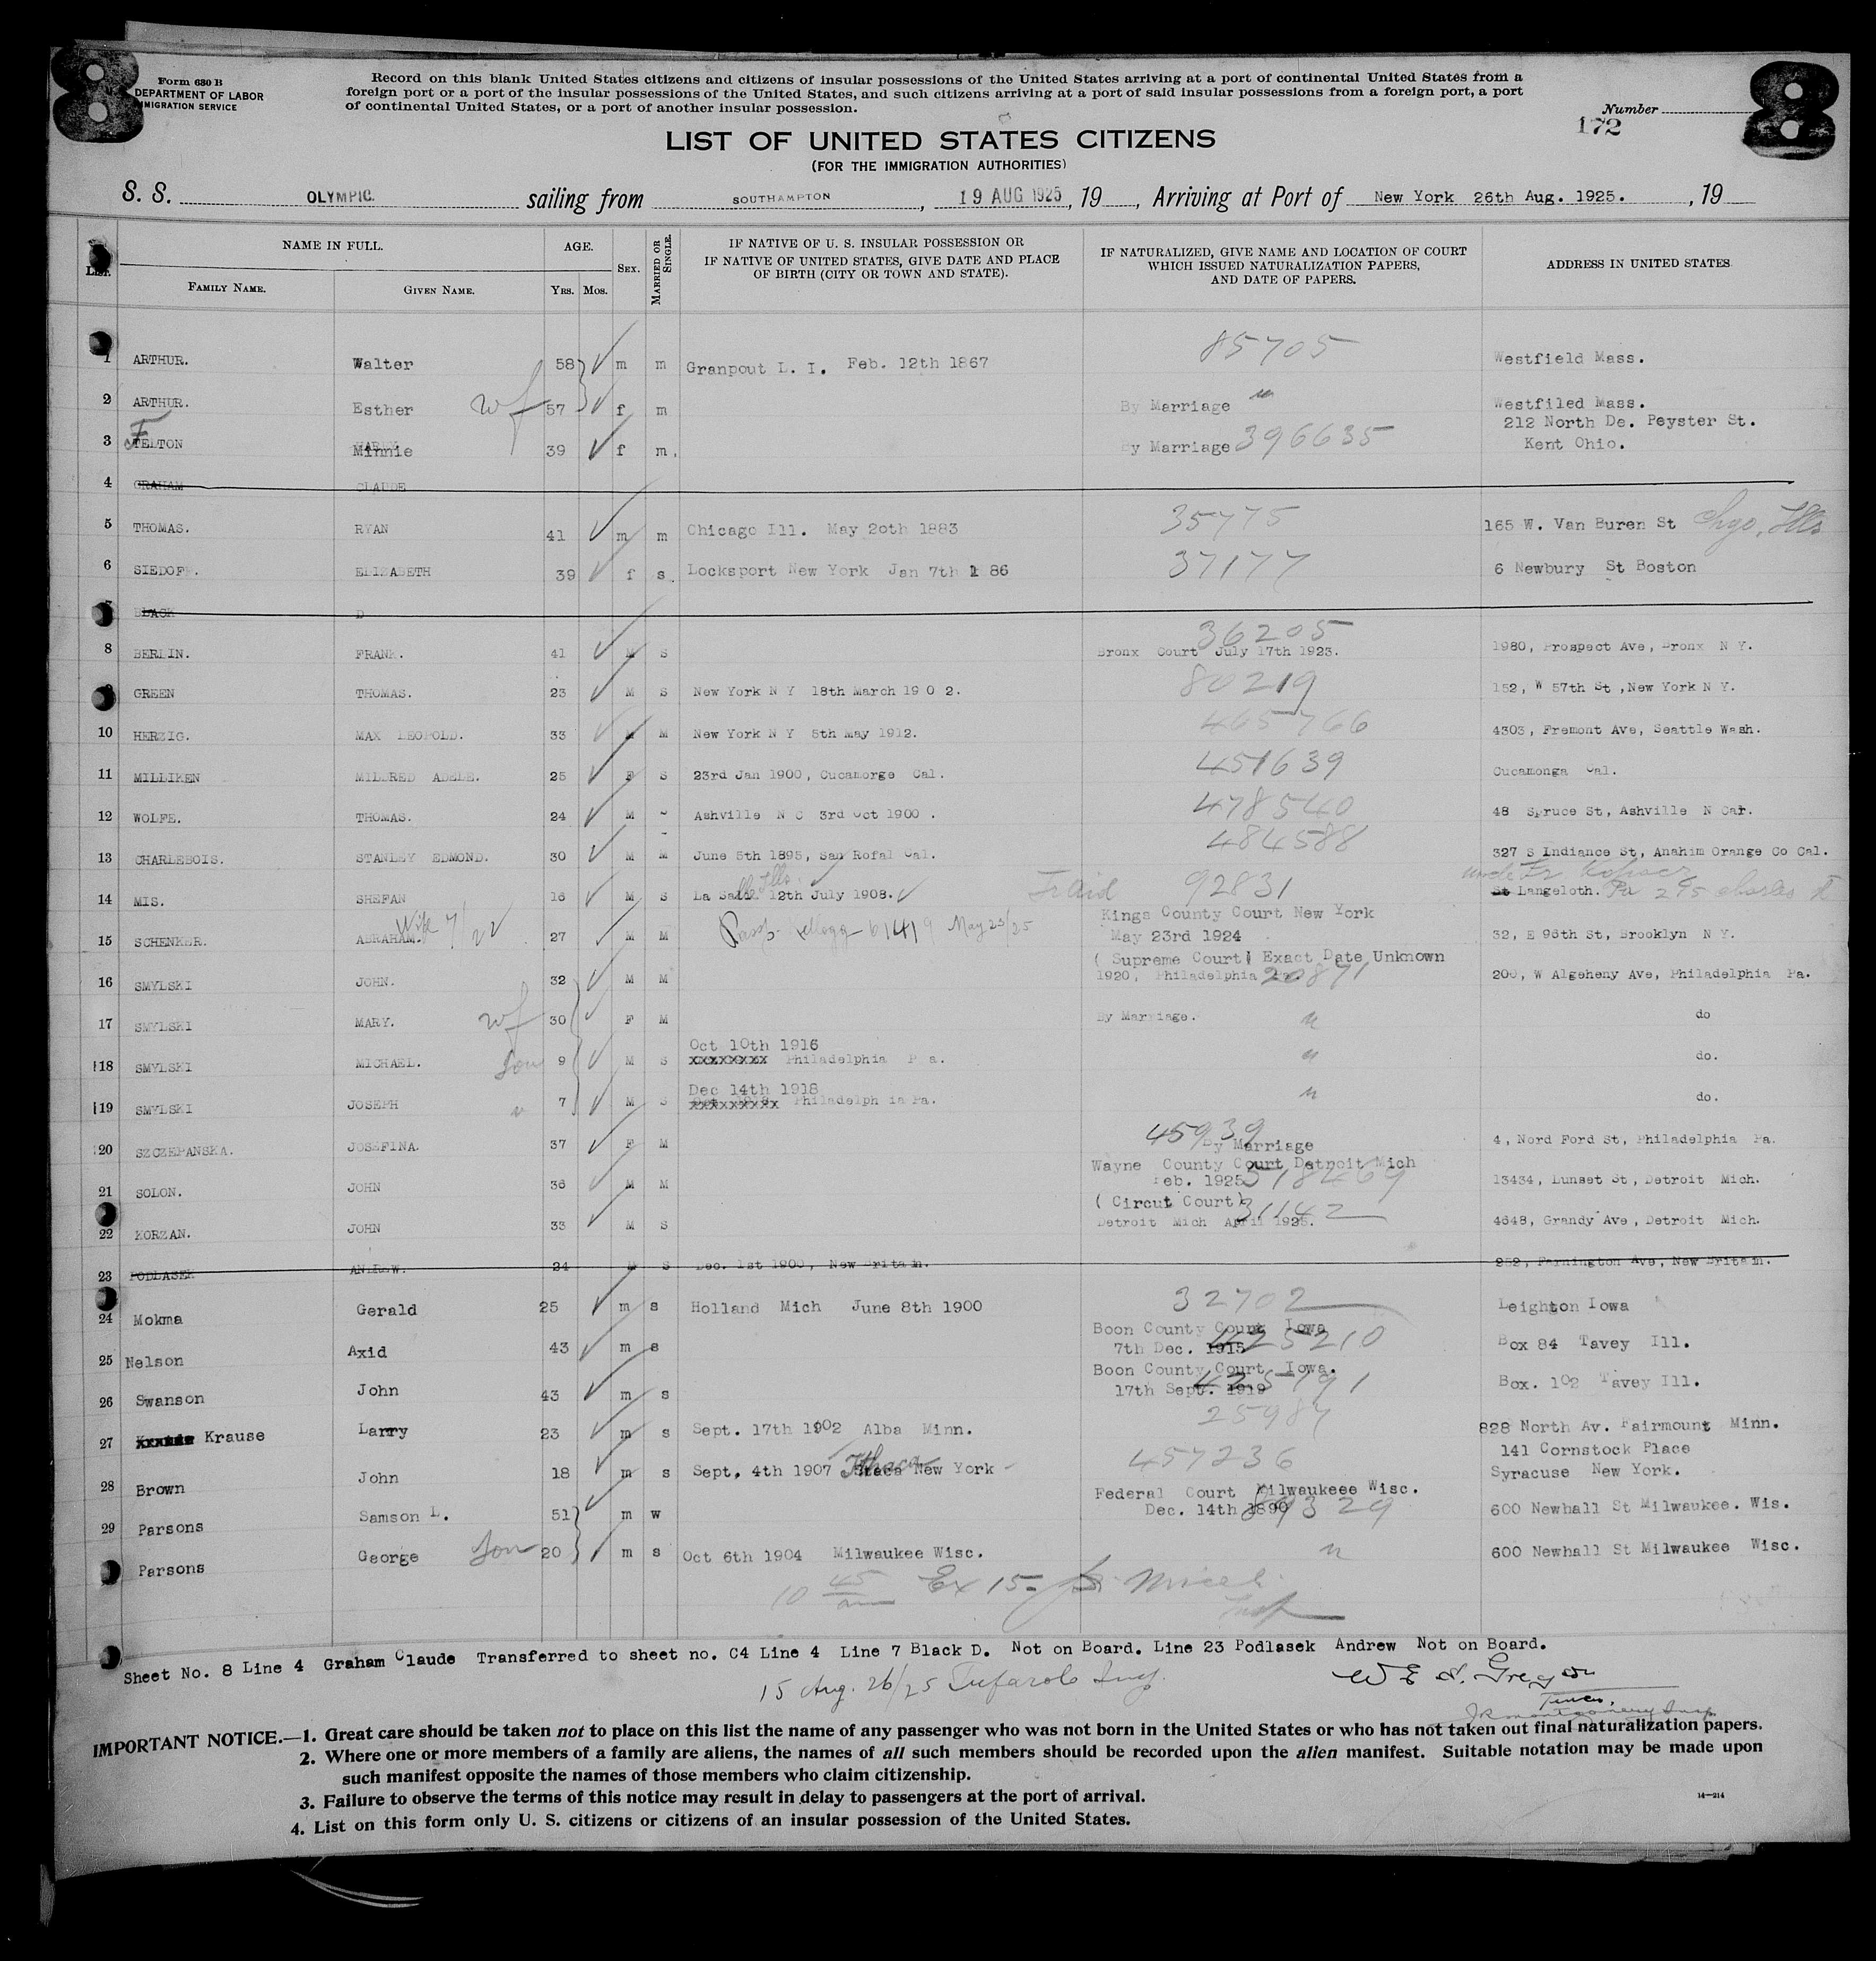 8
8
Form 630 B
DEPARTMENT OF LABOR
IMMIGRATION SERVICE
Record on this blank United States citizens and citizens of insular possessions of the United States arriving at a port of continental United States from a
foreign port or a port of the insular possessions of the United States, and such citizens arriving at a port of said insular possessions from a foreign port, a port
of continental United States, or a port of another insular possession.
Number
172
LIST OF UNITED STATES CITIZENS
(FOR THE IMMIGRATION AUTHORITIES)
S. S. OLYMPIC. sailing from SOUTHAMPTON, 19 AUG 1925, 19 , Arriving at Port of New York 26th Aug. 1925. , 19
LIST. NAME IN FULL. AGE. SEX. MARRIED OR SINGLE. IF NATIVE OF U. S. INSULAR POSSESSION OR IF NATIVE OF UNITED STATES, GIVE DATE AND PLACE OF BIRTH (CITY OR TOWN AND STATE). IF NATURALIZED, GIVE NAME AND LOCATION OF COURT WHICH ISSUED NATURALIZATION PAPERS, AND DATE OF PAPERS. ADDRESS IN UNITED STATES
FAMILY NAME. GIVEN NAME. YRS. MOS.
1 ARTHUR. Walter 58 m m Granpout L. I. Feb. 12th 1867 85705 Westfield Mass.
2 ARTHUR. Esther wf 57 f m By Marriage " Westfiled Mass.
3 FELTON Minnie 39 f m. By Marriage 396635 212 North De. Peyster St.
Kent Ohio.
4 GRAHAM CLAUDE
5 THOMAS. RYAN 41 m m Chicago Ill. May 20th 1883 35775 165 W. Van Buren St Chgo, Ills
6 SIEDOFF. ELIZABETH 39 f s. Locksport New York Jan 7th 1 86 37177 6 Newbury St Boston
7 BLACK D
8 BERLIN. FRANK. 41 M S 36205 Bronx Court July 17th 1923. 1980, Prospect Ave, Bronx N Y.
9 GREEN THOMAS. 23 M S New York N Y 18th March 19 0 2. 80219 152, W 57th St ,New York N Y.
10 HERZIG. MAX LEOPOLD. 33 M M New York N Y 5th May 1912. 465766 4303, Fremont Ave, Seattle Wash.
11 MILLIKEN MILDRED ADELE. 25 F S 23rd Jan 1900, Cucamorge Cal. 451639 Cucamonga Cal.
12 WOLFE. THOMAS. 24 M - Ashville N C 3rd Oct 1900 . 478540 48 Spruce St, Ashville N Car.
13 CHARLEBOIS. STANLEY EDMOND. 30 M M June 5th 1895, San Rofal Cal. 484588 327 S Indiance St, Anahim Orange Co Cal.
14 MIS. SHEFAN 16 M S La Salle Ills. 12th July 1908. 92831 uncle Fr
St Langeloth. Pa 295 Charles
15 SCHENKER. ABRAHAM. Wife 27 M M Passp. Kellogg 61419 May 23/25 Kings County Court New York
May 23rd 1924 32, E 96th St, Brooklyn N Y.
16 SMYLSKI JOHN. 32 M M ( Supreme Court) Exact Date Unknown
1920, Philadelphia 20871 200, W Algeheny Ave, Philadelphia Pa.
17 SMYLSKI MARY. wf 30 F M By Marriage. " do
18 SMYLSKI MICHAEL. Son 9 M S Oct 10th 1916
xxxxxxxx Philadelphia P a. " do.
19 SMYLSKI JOSEPH " 7 M S Dec 14th 1918
xxxxxxxxx Philadelph ia Pa. " do.
20 SZCZEPANSKA. JOSEFINA. 37 F M 45939 By Marriage 4, Nord Ford St, Philadelphia Pa.
21 SOLON. JOHN 36 M M Wayne County Court Detroit Mich
Feb. 1925 518469 13434, Lunset St, Detroit Mich.
22 KORZAN. JOHN 33 M S ( Circut Court) 31142
Detroit Mich April 1925. 4648, Grandy Ave, Detroit Mich.
23 PODLASEK ANDREW. 24 M S Dec. 1st 1900, New Britain. 252, Farmington Ave, New Britain.
24 Mokma Gerald 25 m s Holland Mich June 8th 1900 32702 Leighton Iowa
25 Nelson Axid 43 m s Boon County Court Iowa
7th Dec. 1915 425210 Box 84 Tavey Ill.
26 Swanson John 43 m s Boon County Court Iowa.
17th Sept. 1919 Box. 102 Tavey Ill.
27 Krause Larry 23 m s Sept. 17th 1902 Alba Minn. 25987 828 North Av. Fairmount Minn.
28 Brown John 18 m s Sept. 4th 1907 Ithaca New York 457236 141 Cornstock Place
Syracuse New York.
29 Parsons Samson L. 51 m w Federal Court Milwaukeee Wisc.
Dec. 14th 1890 89329 600 Newhall St Milwaukee. Wis.
Parsons George Son 20 m s Oct 6th 1904 Milwaukee Wisc. " 600 Newhall St Milwaukee Wisc.
10 45 am Ex 15 Insp
Sheet No. 8 Line 4 Graham Claude Transferred to sheet no. C4 Line 4 Line 7 Black D. Not on Board. Line 23 Podlasek Andrew Not on Board.
15 Aug. 26/25 Tufarolo Insp.
JR Montgomery Insp.
IMPORTANT NOTICE.—1. Great care should be taken not to place on this list the name of any passenger who was not born in the United States or who has not taken out final naturalization papers.
2. Where one or more members of a family are aliens, the names of all such members should be recorded upon the alien manifest. Suitable notation may be made upon
such manifest opposite the names of those members who claim citizenship.
3. Failure to observe the terms of this notice may result in delay to passengers at the port of arrival.
4. List on this form only U. S. citizens or citizens of an insular possession of the United States.
14—214